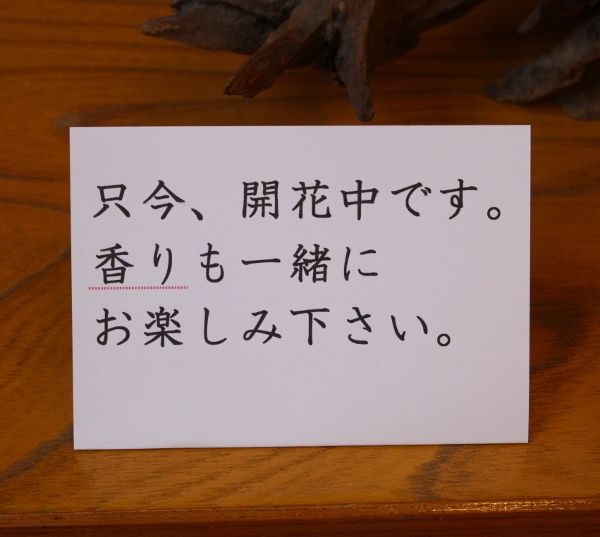 只今、開花中です。
香りも一緒に
お楽しみ下さい。